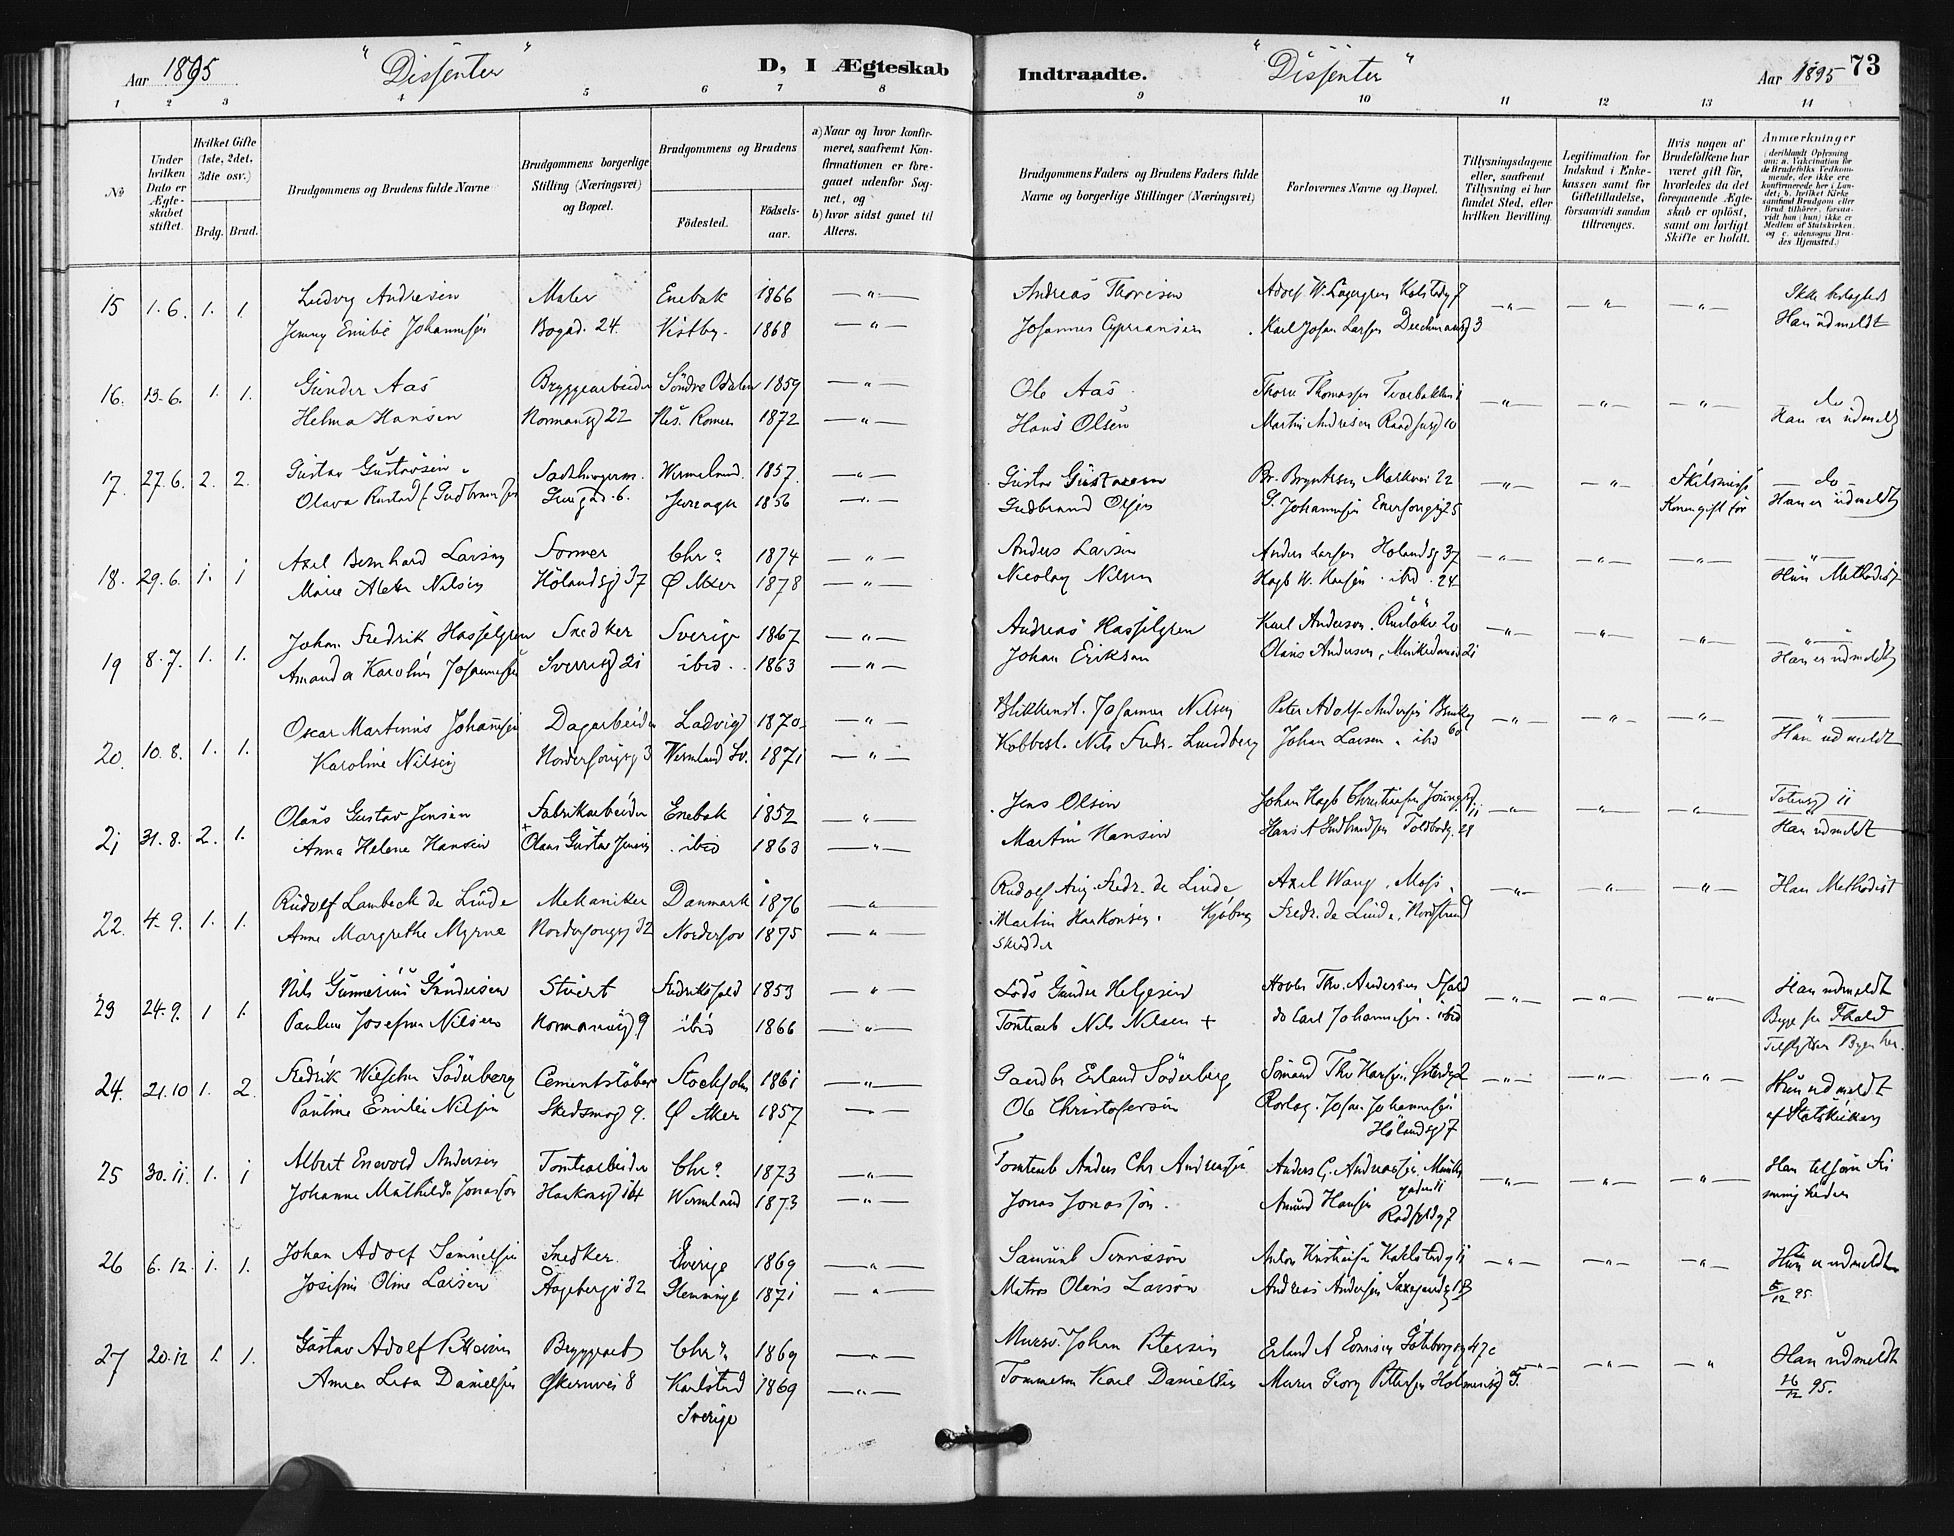 Aar 1895 "Dissenter" D, I Ægteskab Indtraadte. "Dissenter" Aar 1895 73
1 2 3 4 5 6 7 8 9 10 11 12 13 14
No
Under hvilken Dato er Ægteskabet stiftet.
Hvilket Gifte (1ste, 2det, 3die osv.)
Brdg. Brud.
Brudgommens og Brudens fulde Navne
Brudgommens borgerlige Stilling (Næringsvei) og Bopæl.
Brudgommens og Brudens
Fødested. Fødsels-aar.
a) Naar og hvor konfirmeret, saafremt Konfirmationen er foregaaet udenfor Sognet, og
b) hvor sidst gaaet til Alters.
Brudgommens Faders og Brudens Faders fulde Navne og borgerlige Stillinger (Næringsvei)
Forlovernes Navne og Bopæl.
Tillysningsdagene eller, saafremt Tillysning ei har fundet Sted, efter hvilken Bevilling.
Legitimation for Indskud i Enkekassen samt for Giftetilladelse, forsaavidt saadan tiltrænges.
Hvis nogen af Brudefolkene har været gift før, hvorledes da det foregaaende Ægteskab er opløst, samt om lovligt Skifte er holdt.
Anmærkninger
(deriblandt Oplysning om: a. Vakcination for de Brudefolks Vedkommende, der ikke ere konfirmerede her i Landet; b. hvilket Kirkesamfund Brudgom eller Brud tilhører, forsaavidt han (hun) ikke er Medlem af Statskirken, og c. udensogns Brudes Hjemsted.)
15 1.6. 1. 1 Ludvig Andresen Maler Enebak 1866 —"— Andreas Thoresen Adolf W. Lagergren Karlstadg 7 —"— —"— —"— Ikke
Jenny Emilie Johannesen Bogad. 24. Vestby. 1868 —"— Johannes Cyprianson Karl Johan Larsen Deichmansg 3 Han udmeldt
16. 13.6. 1. 1. Gunder Aas Bryggearbeider Søndre Odalen 1859 —"— Ole Aas Thore Thomassen Tverbakken 1 —"— —"— —"— do
Helma Hansen Normansg 22 Nes. Romer. 1872 —"— Hans Olsen Martin Andresen 10 Han er udmeldt
17. 27.6. 2. 2. Gustav Gustavsen Wermeland 1857. —"— Gustav Gustavsen Br. Bryntesen Markvei 22 —"— —"— Skilsmisse — do —
Olava Rustad f. Gudbrandsen 6. 1856 —"— Gudbrand Olsen G. Johannesen 25 Konen gift før Han er udmeldt
18. 29.6. 1. 1 Axel Bernhard Larsen Former Chra 1874 —"— Anders Larsen Anders Larsen Hølandsg 37 —"— —"— —"— —"—
Marie Aletta Nilsen Hølandsg 37 Ø Aker 1878 —"— Nicolay Nilsen Hagb W. Hansen ibid. 24 Hun Methodist
19 8.7. 1. 1. Johan Fredrik Hasselgren Snedker Sverige 1867 —"— Andreas Hasselgren Karl Anderson. Ruseløkv 20 —"— —"— —"— —"—
Amanda Karolin Johannesen Sverresg 21 ibid. 1863 —"— Johan Erikson Olaus Andersen, Munkedamsv 21 Han er udmeldt
20. 10.8. 1. 1. Oscar Martinius Johannesen Dagarbeider Ladvig 1870 —"— Blikkensl. Johannes Nilsen Peter Adolf Andersen —"— —"— —"— —"—
Karoline Nilsen Nordersongsg 3 Wermland Sv. 1871 —"— Kobbesl. Nils Fredr. Lundberg Johan Larsen ibid 60 Han udmeldt
21 31.8. 2. 1. Olaus Gustav Jensen Fabrikarbeider Enebak 1852 —"— Jens Olsen Johan Hagb Christiansen Youngsg. 11 —"— —"— —"— Totensg 11
Anna Helene Hansen + Olaus Gustav Jensen ibid 1863 —"— Martin Hansen Hans A Gulbrandsen Toldbodg. 28 Han udmeldt
22. 4.9. 1. 1. Rudolf Lambeck de Linde Mekaniker Danmark 1876 —"— Rudolf Aug. Fredr. de Linde Axel Wang, Moss. —"— —"— —"— Han Methodist
Anne Margrethe Myrne Nordersongsg 32 Norderhov 1875 —"— Martin Haakonsen. Fredr. de Linde, Nordstrand
Skrædder
23 24.9. 1 1. Nils Gunnerius Gundersen Stuert Fredrikshald 1853 —"— Lods Gunder Helgesen Thv. Andersen Fhald —"— —"— —"— Han udmeldt
Paulin Josefine Nilsen Normansg 9 ibid 1866 —"— Tomtearb Nils Nilsen + do Carl Johannesen. ibid Begge fra Fhald
Tilflytter Byen her.
24. 21.10 1. 2. Fredrik Wilhelm Söderberg Cementstøber Stockholm 1861 —"— Erland Söderberg Sømand Thv Hansen, 2 —"— —"— —"— Hun udmeldt
Pauline Emilie Nilsen Skedsmog 9. Ø Aker 1857 —"— Ole Christofersen Johs. Johannesen af Statskirken
Hølandsg 7
25 30.11. 1. 1 Albert Enevold Andersen Tomtearbeider Chra 1873 —"— Tomtearb Anders Chr Andreassen Anders G. Andreassen —"— —"— —"— Han tilhører Fri
Johanne Mathilde Jonasson Haakonsg 14 Wermland 1873 —"— Jonas Jonasson. Amund Hansen menigheden
Radhusg 7
26 6.12. 1. 1. Johan Adolf Samuelsen Snedker. Sverige 1869 —"— Samuel Anton Kristiansen Karlstadg 11 —"— —"— —"— Hun er udmeldt
Josefine Oline Larsen Aagebergv 32 1871 —"— Matros Olaus Larson Andreas Andersen Saxegardsg 13 5/12 95.
27 20.12 1. 1. Gustav Adolf Pettersen Bryggearb Chra. 1869 —"— Murer. Johan Petersen Erland A Göteborgg 47c —"— —"— —"— Han udmeldt
Anna Lisa Danielsen Økernvei 8 Karlstad 1869 —"— Tømmerm Karl Danielsen Murer Georg Pettersen 5. 16/12 95.
Sverige